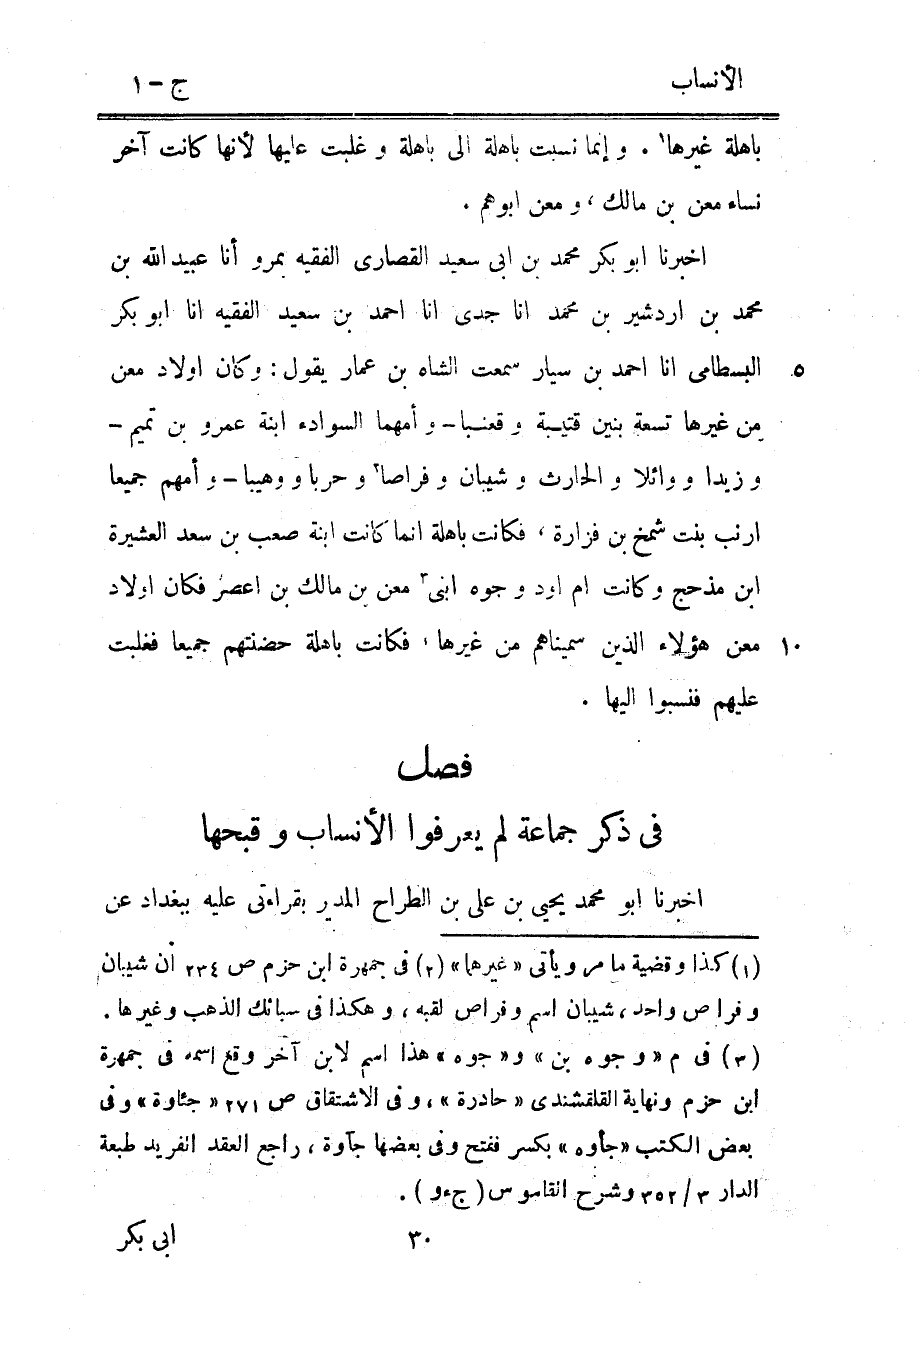 الأنساب ج - ١
باهلة غيرها¹ . و إنما نسبت باهلة الى باهلة و غلبت عليها لأنها كانت آخر
نساء معن بن مالك ، و معن ابوهم .
اخبرنا ابو بكر محمد بن ابى سعيد القصارى الفقيه بمرو أنا عبيد الله بن
محمد بن اردشير بن محمد انا جدى انا احمد بن سعيد الفقيه انا ابو بكر
٥ البسطامى انا احمد بن سيار سمعت الشاه بن عمار يقول : وكان اولاد معن
من غيرها تسعة بنين قتيبة و قعنبا - و أمهما السوداء ابنة عمرو بن تميم -
و زيدا و وائلا و الحارث و شيبان و فراصا² و حربا و وهيبا - و أمهم جميعا
ارنب بنت شمخ بن فزارة ، فكانت باهلة انما كانت ابنة صعب بن سعد العشيرة
ابن مذحج وكانت ام اود و جوه ابنى³ معن بن مالك بن اعصر فكان اولاد
١٠ معن هؤلاء الذين سميناهم من غيرها ، فكانت باهلة حضنتهم جميعا فغلبت
عليهم فنسبوا اليها .
فصل
فى ذكر جماعة لم يعرفوا الأنساب و قبحها
اخبرنا ابو محمد يحيى بن على بن الطراح المدير بقراءتى عليه ببغداد عن
(١) كذا و قضية ما مر و يأتى « غيرها » (٢) فى جمهرة ابن حزم ص ٢٣٤ أن شيبان
و فراص واحد ، شيبان اسم و فراص لقبه ، و هكذا فى سبائك الذهب وغيرها .
(٣) فى م « و جوه بن » و « جوه » هذا اسم لابن آخر وقع اسمه فى جمهرة
ابن حزم ونهاية القلقشندى « حادرة » ، و فى الاشتقاق ص ٢٧١ « جئاوة » و فى
بعض الكتب « جأوه » بكسر ففتح وفى بعضها جآوة ، راجع العقد الفريد طبعة
الدار ٣ / ٣٥٢ وشرح القاموس ( ج ء و ) .
٣٠ ابى بكر